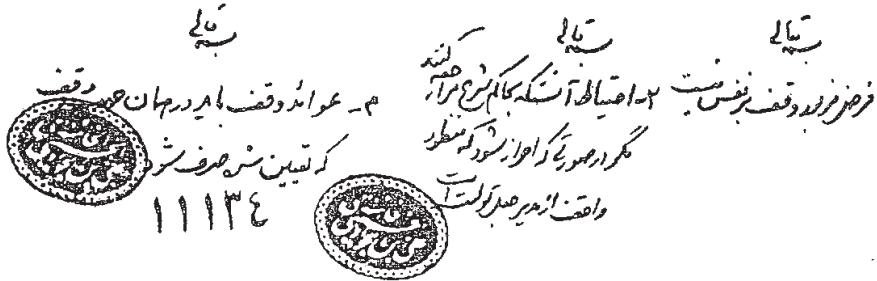 بسمه تعالی
فرض مزبور وقف بر نفس نیست
بسمه تعالی
۲- احتیاط آنستکه بحاکم شرع مراجعه کنند
مگر در صورتی که احراز شود که منظور
واقف از مدیر جلد تولیت است
بسمه تعالی
۳- عوائد وقف باید در همان جهت وقف
که تعیین شده صرف شود
۱۱۱۳٤